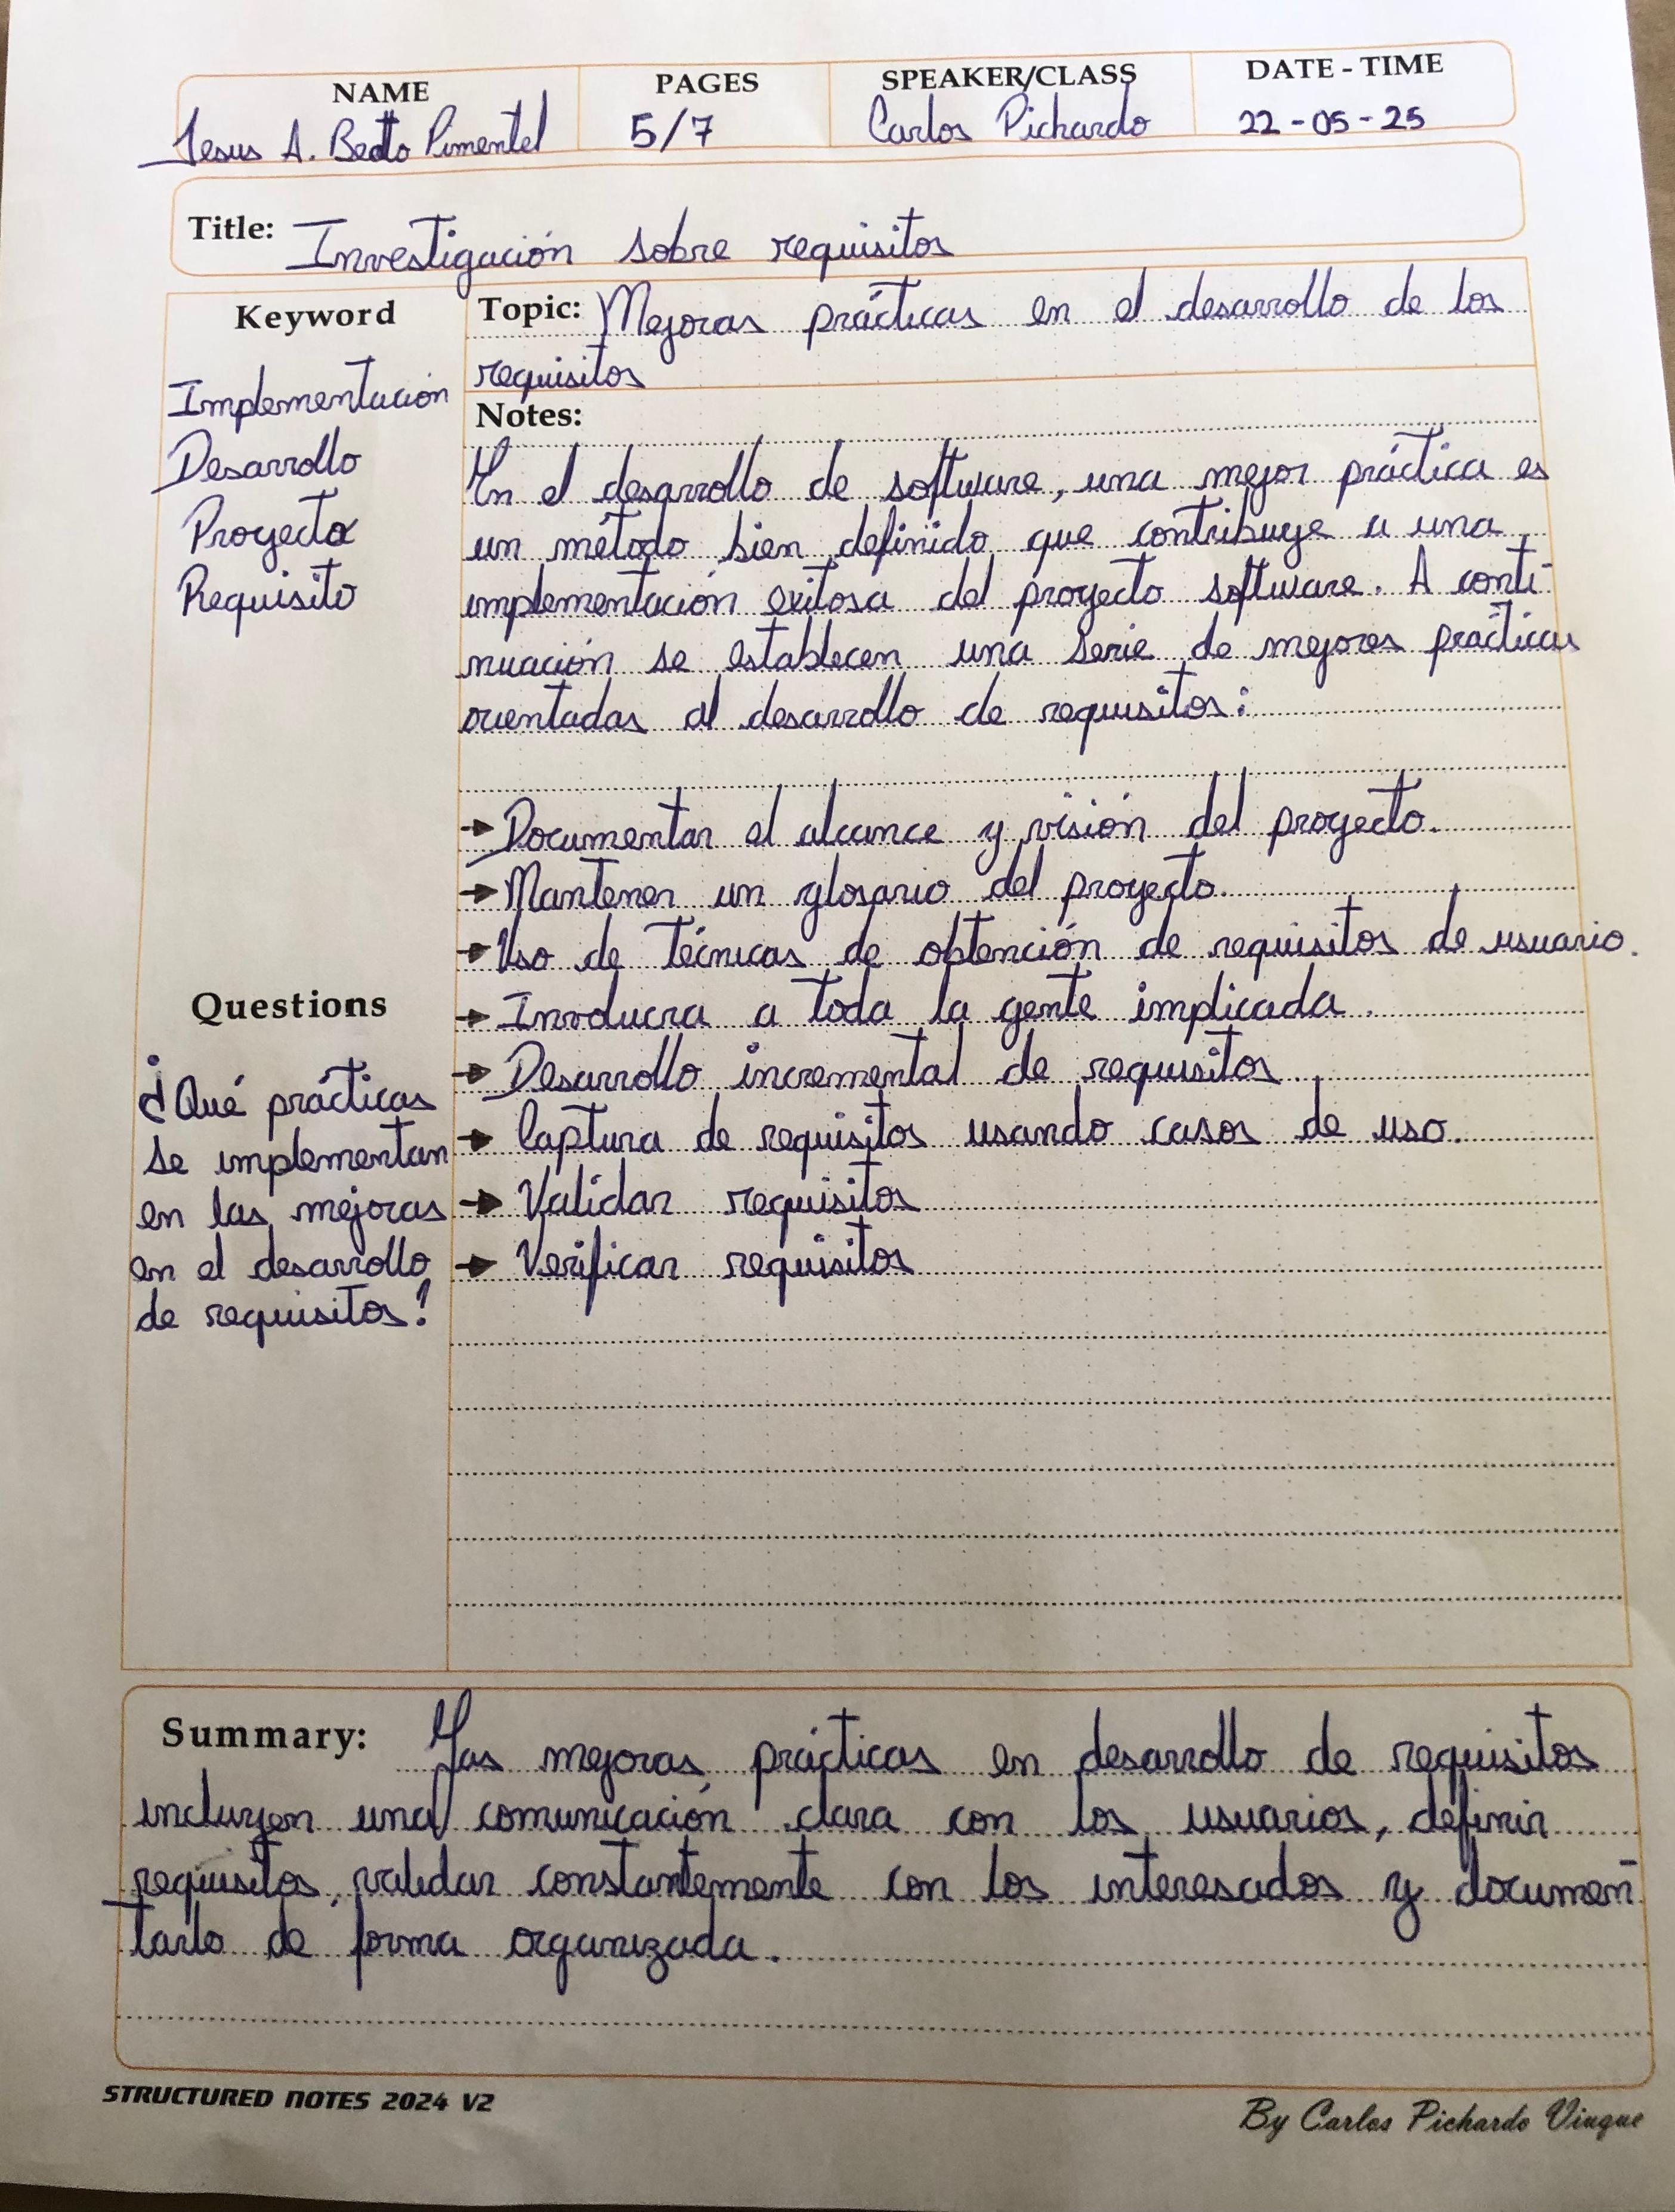 NAME PAGES SPEAKER/CLASS DATE - TIME
Jesus A. Pimentel 5/7 Carlos Pichardo 22-05-25
Title: Investigación sobre requisitos
Keyword
Implementación
Desarrollo
Proyecto
Requisito
Topic: Mejoras prácticas en el desarrollo de los
requisitos
Notes:
En el desarrollo de software, una mejor práctica es
un método bien definido que contribuye a una
implementación exitosa del proyecto software. A conti-
nuación se establecen una serie de mejores prácticas
orientadas al desarrollo de requisitos:
→ Documentar el alcance y visión del proyecto.
→ Mantener un glosario del proyecto.
→ Uso de técnicas de obtención de requisitos de usuario.
→ Involucra a toda la gente implicada.
→ Desarrollo incremental de requisitos.
→ Captura de requisitos usando casos de uso.
→ Validar requisitos
→ Verificar requisitos
Questions
¿Qué prácticas
se implementan
en las mejoras
en el desarrollo
de requisitos?
Summary: Las mejoras prácticas en desarrollo de requisitos
incluyen una comunicación clara con los usuarios, definir
requisitos, validar constantemente con los interesados y documen-
tarlo de forma organizada.
STRUCTURED NOTES 2024 V2
By Carlos Pichardo Viuque